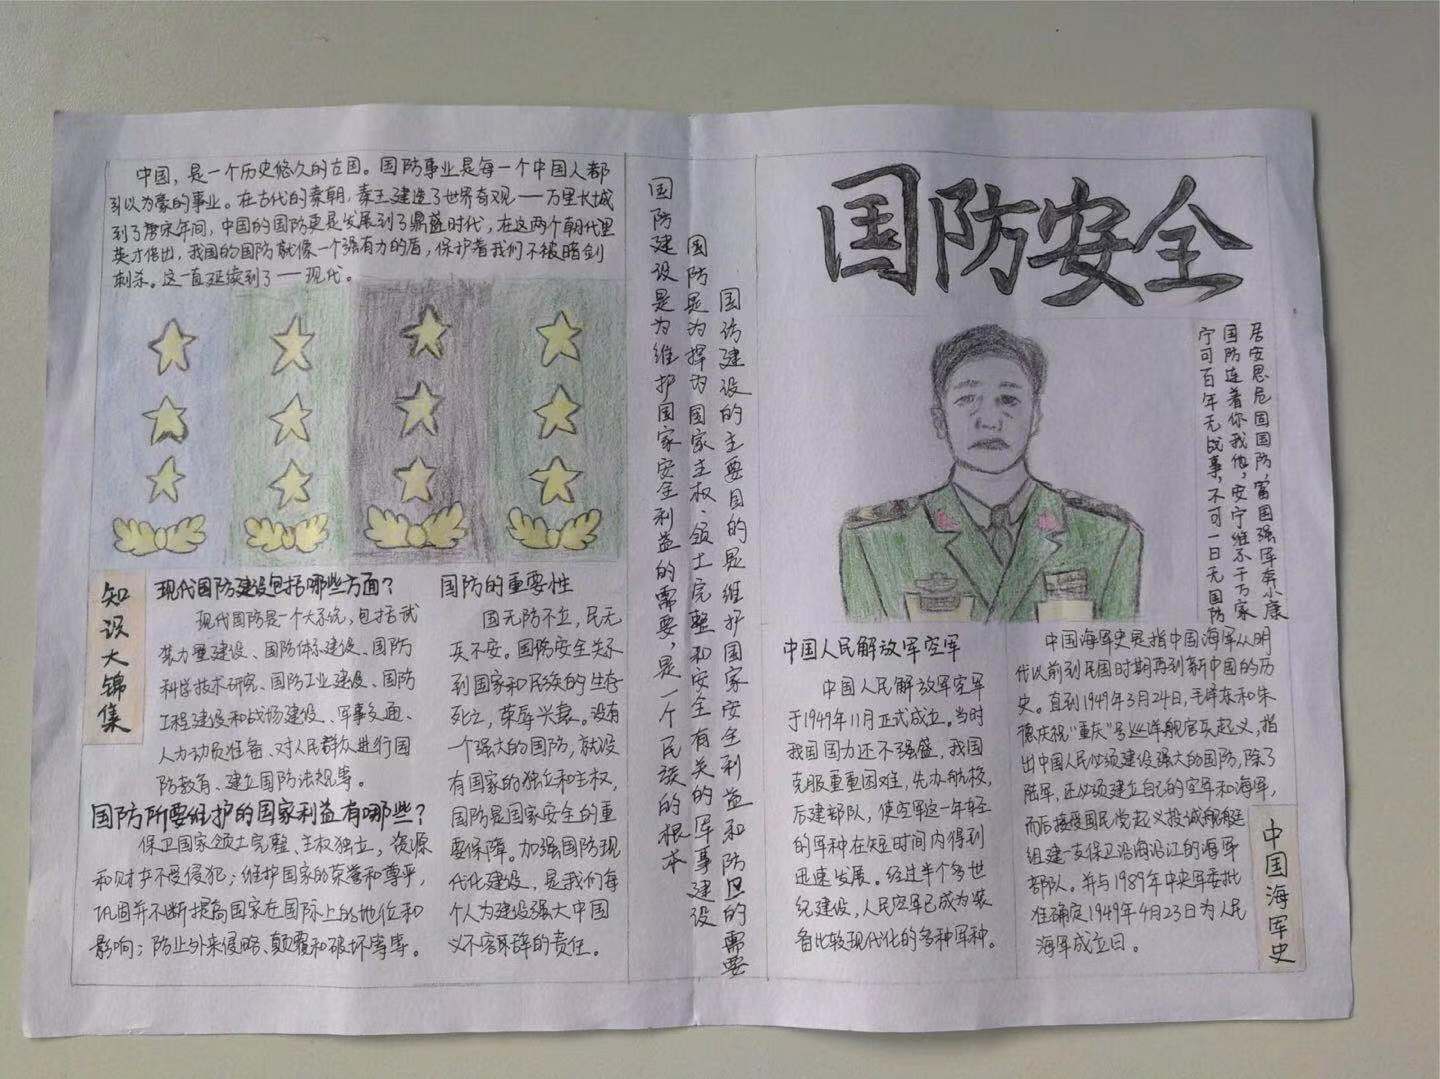 中国，是一个历史悠久的古国。国防事业是每一个中国人都
引以为豪的事业。在古代的秦朝，秦王建造了世界奇观——万里长城
到了唐宋年间，中国的国防更是发展到了鼎盛时代，在这两个朝代里
英才倍出，我国的国防就像一个强有力的盾，保护者我们不被暗剑
刺杀。这一直延续到了——现代。
知识大锦集
现代国防建设包括哪些方面？
现代国防是一个大系统，包括武
装力量建设、国防体系建设、国防
科学技术研究、国防工业建设、国防
工程建设和战场建设、军事交通、
人力动员准备、对人民群众进行国
防教育、建立国防法规等。
国防所要维护的国家利益有哪些？
保卫国家领土完整、主权独立，资源
和财产不受侵犯；维护国家的荣誉和尊严，
巩固并不断提高国家在国际上的地位和
影响；防止外来侵略、颠覆和破坏等等。
国防的重要性
国无防不立，民无
兵不安。国防安全关系
到国家和民族的生存
死亡，荣辱兴衰。没有
一个强大的国防，就没
有国家的独立和主权，
国防是国家安全的重
要保障。加强国防现
代化建设，是我们每
个人为建设强大中国
义不容辞的责任。
国防建设是为维护国家安全利益的需要，是一个民族的根本
国防是为捍为国家主权、领土完整和安全有关的军事建设
国访建设的主要目的是维护国家安全利益和防卫的需要
国防安全
居安思危固国防，富国强军奔小康
国防连着你我他，安宁维系千万家
宁可百年无战事，不可一日无国防
中国人民解放军空军
中国人民解放军空军
于1949年11月正式成立。当时
我国国力还不强盛，我国
克服重重困难，先办航校，
后建部队，使空军这一年轻
的军种在短时间内得到
迅速发展。经过半个多世
纪建设，人民空军已成为装
备比较现代化的多种军种。
中国海军史是指中国海军从明
代以前到民国时期再到新中国的历
史。直到1949年3月24日，毛泽东和朱
德庆祝“重庆”号巡洋舰官兵起义，指
出中国人民必须建设强大的国防，除了
陆军，还必须建立自己的空军和海军，
而后接受国民党起义投诚舰艇
组建一支保卫沿海沿江的海军
部队。并与1989年中央军委批
准确定1949年4月23日为人民
海军成立日。
中国海军史